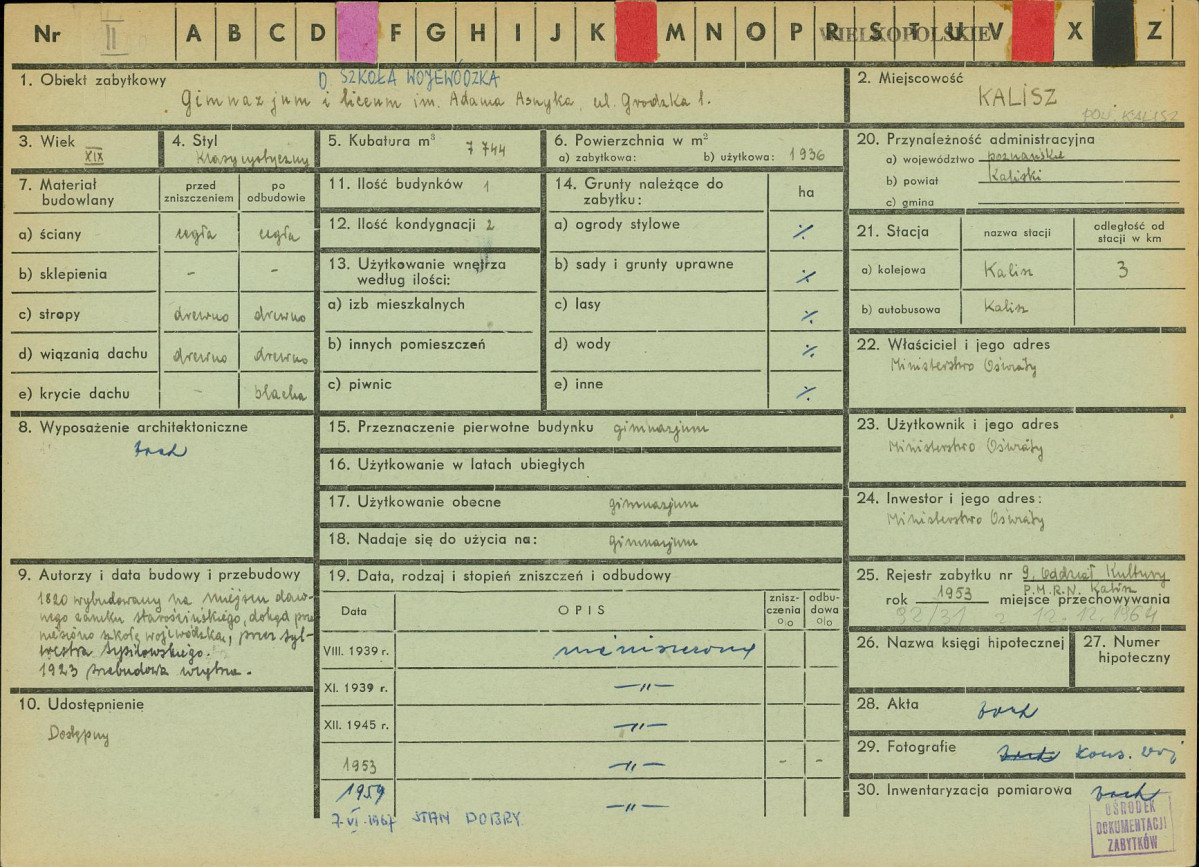 Nr II A B C D F G H I J K M N O P R S T U V X Z
WIELKOPOLSKIE
1. Obiekt zabytkowy
D. SZKOŁA WOJEWÓDZKA
Gimnazjum i liceum im. Adama Asnyka, ul. Grodzka 1.
2. Miejscowość
KALISZ
POW. KALISZ
3. Wiek
XIX
4. Styl
klasycystyczny
5. Kubatura m³ 7 744
6. Powierzchnia w m²
a) zabytkowa: b) użytkowa: 1936
20. Przynależność administracyjna
a) województwo poznańskie
b) powiat Kaliski
c) gmina
7. Materiał budowlany
przed zniszczeniem
po odbudowie
a) ściany cegła cegła
b) sklepienia - -
c) stropy drewno drewno
d) wiązania dachu drewno drewno
e) krycie dachu - blacha
11. Ilość budynków 1
12. Ilość kondygnacji 2
13. Użytkowanie wnętrza
według ilości:
a) izb mieszkalnych
b) innych pomieszczeń
c) piwnic
14. Grunty należące do
zabytku:
ha
a) ogrody stylowe ·/.
b) sady i grunty uprawne ·/.
c) lasy ·/.
d) wody ·/.
e) inne ·/.
21. Stacja
nazwa stacji
odległość od
stacji w km
a) kolejowa Kalisz 3
b) autobusowa Kalisz
22. Właściciel i jego adres
Ministerstwo Oświaty
8. Wyposażenie architektoniczne
brak
15. Przeznaczenie pierwotne budynku gimnazjum
16. Użytkowanie w latach ubiegłych
17. Użytkowanie obecne gimnazjum
18. Nadaje się do użycia na: gimnazjum
23. Użytkownik i jego adres
Ministerstwo Oświaty
24. Inwestor i jego adres:
Ministerstwo Oświaty
9. Autorzy i data budowy i przebudowy
1820 wybudowany na miejscu daw-
nego zamku starościńskiego, dokąd prze
niesiono szkołę wojewódzką, przez Syl-
westra Szpilowskiego.
1923 przebudowa wnętrza.
10. Udostępnienie
Dostępny
19. Data, rodzaj i stopień zniszczeń i odbudowy
Data
OPIS
znisz-
czenia
o/o
odbu-
dowa
o/o
VIII. 1939 r. niezniszczony
XI. 1939 r. —"—
XII. 1945 r. —"—
1953 —"— - -
1959 —"—
7.VI.1967 STAN DOBRY
25. Rejestr zabytku nr 9, Oddział Kultury
P.M.R.N. Kalisz
rok 1953 miejsce przechowywania
92/31 z 12.12.1964
26. Nazwa księgi hipotecznej
27. Numer
hipoteczny
28. Akta brak
29. Fotografie brak Kons. Woj
30. Inwentaryzacja pomiarowa brak
OŚRODEK
DOKUMENTACJI
ZABYTKÓW